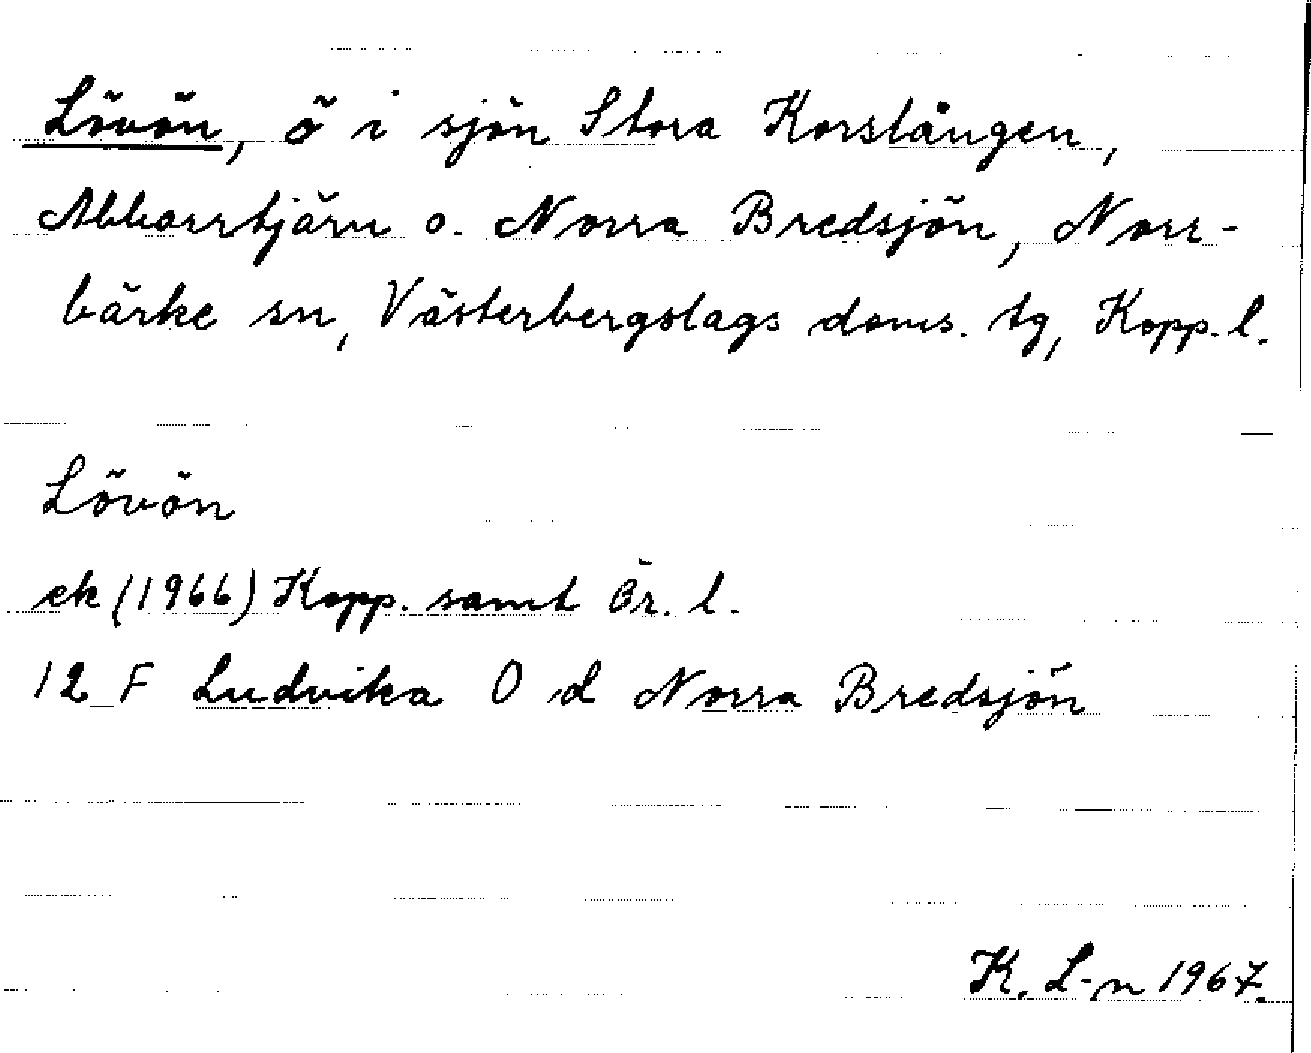 Lövön, ö i sjön Stora Korslången,
Abborrtjärn o. Norra Bredsjön, Norr-
bärke sn, Västerbergslags doms. tg, Kopp. l.
Lövön
ek (1966) Kopp. samt Ör. l.
12 F Ludvika 0 d Norra Bredsjön
K. L-n 1967.